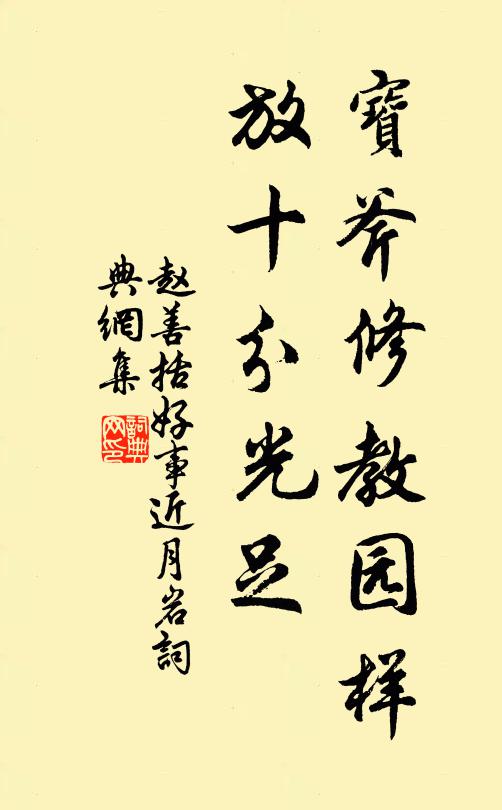 寶斧修教园样
放十分光足
赵善括好事近月岩詞
典網集
詞典网印